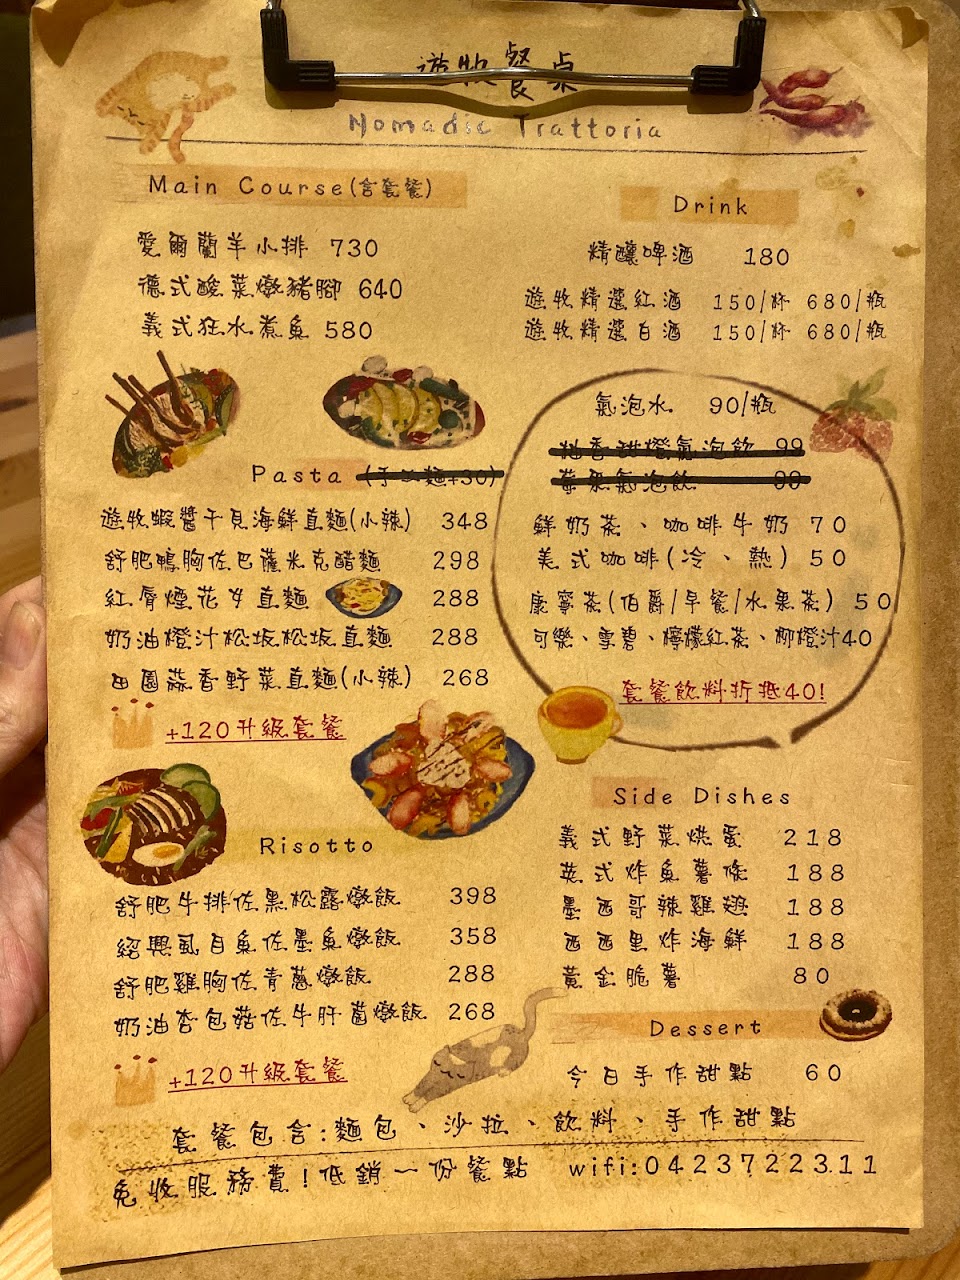 遊牧餐桌
Nomadic Trattoria
Main Course(含套餐)
愛爾蘭羊小排 730
德式酸菜燉豬腳 640
義式狂水煮魚 580
Pasta (手工麵+30)
遊牧蝦醬干貝海鮮直麵(小辣) 348
舒肥鴨胸佐巴薩米克醋麵 298
紅唇煙花女直麵 288
奶油橙汁松坂松坂直麵 288
田園蒜香野菜直麵(小辣) 268
+120升級套餐
Risotto
舒肥牛排佐黑松露燉飯 398
紹興虱目魚佐墨魚燉飯 358
舒肥雞胸佐青蔥燉飯 288
奶油杏包菇佐牛肝菌燉飯 268
+120升級套餐
Drink
精釀啤酒 180
遊牧精選紅酒 150/杯 680/瓶
遊牧精選白酒 150/杯 680/瓶
氣泡水 90/瓶
柚香甜橙氣泡飲 99
莓果氣泡飲 99
鮮奶茶、咖啡牛奶 70
美式咖啡(冷、熱) 50
康寧茶(伯爵/早餐/水果茶) 50
可樂、雪碧、檸檬紅茶、柳橙汁40
套餐飲料折抵40!
Side Dishes
義式野菜烘蛋 218
英式炸魚薯條 188
墨西哥辣雞翅 188
西西里炸海鮮 188
黃金脆薯 80
Dessert
今日手作甜點 60
套餐包含:麵包、沙拉、飲料、手作甜點
免收服務費!低銷一份餐點 wifi:0423722311